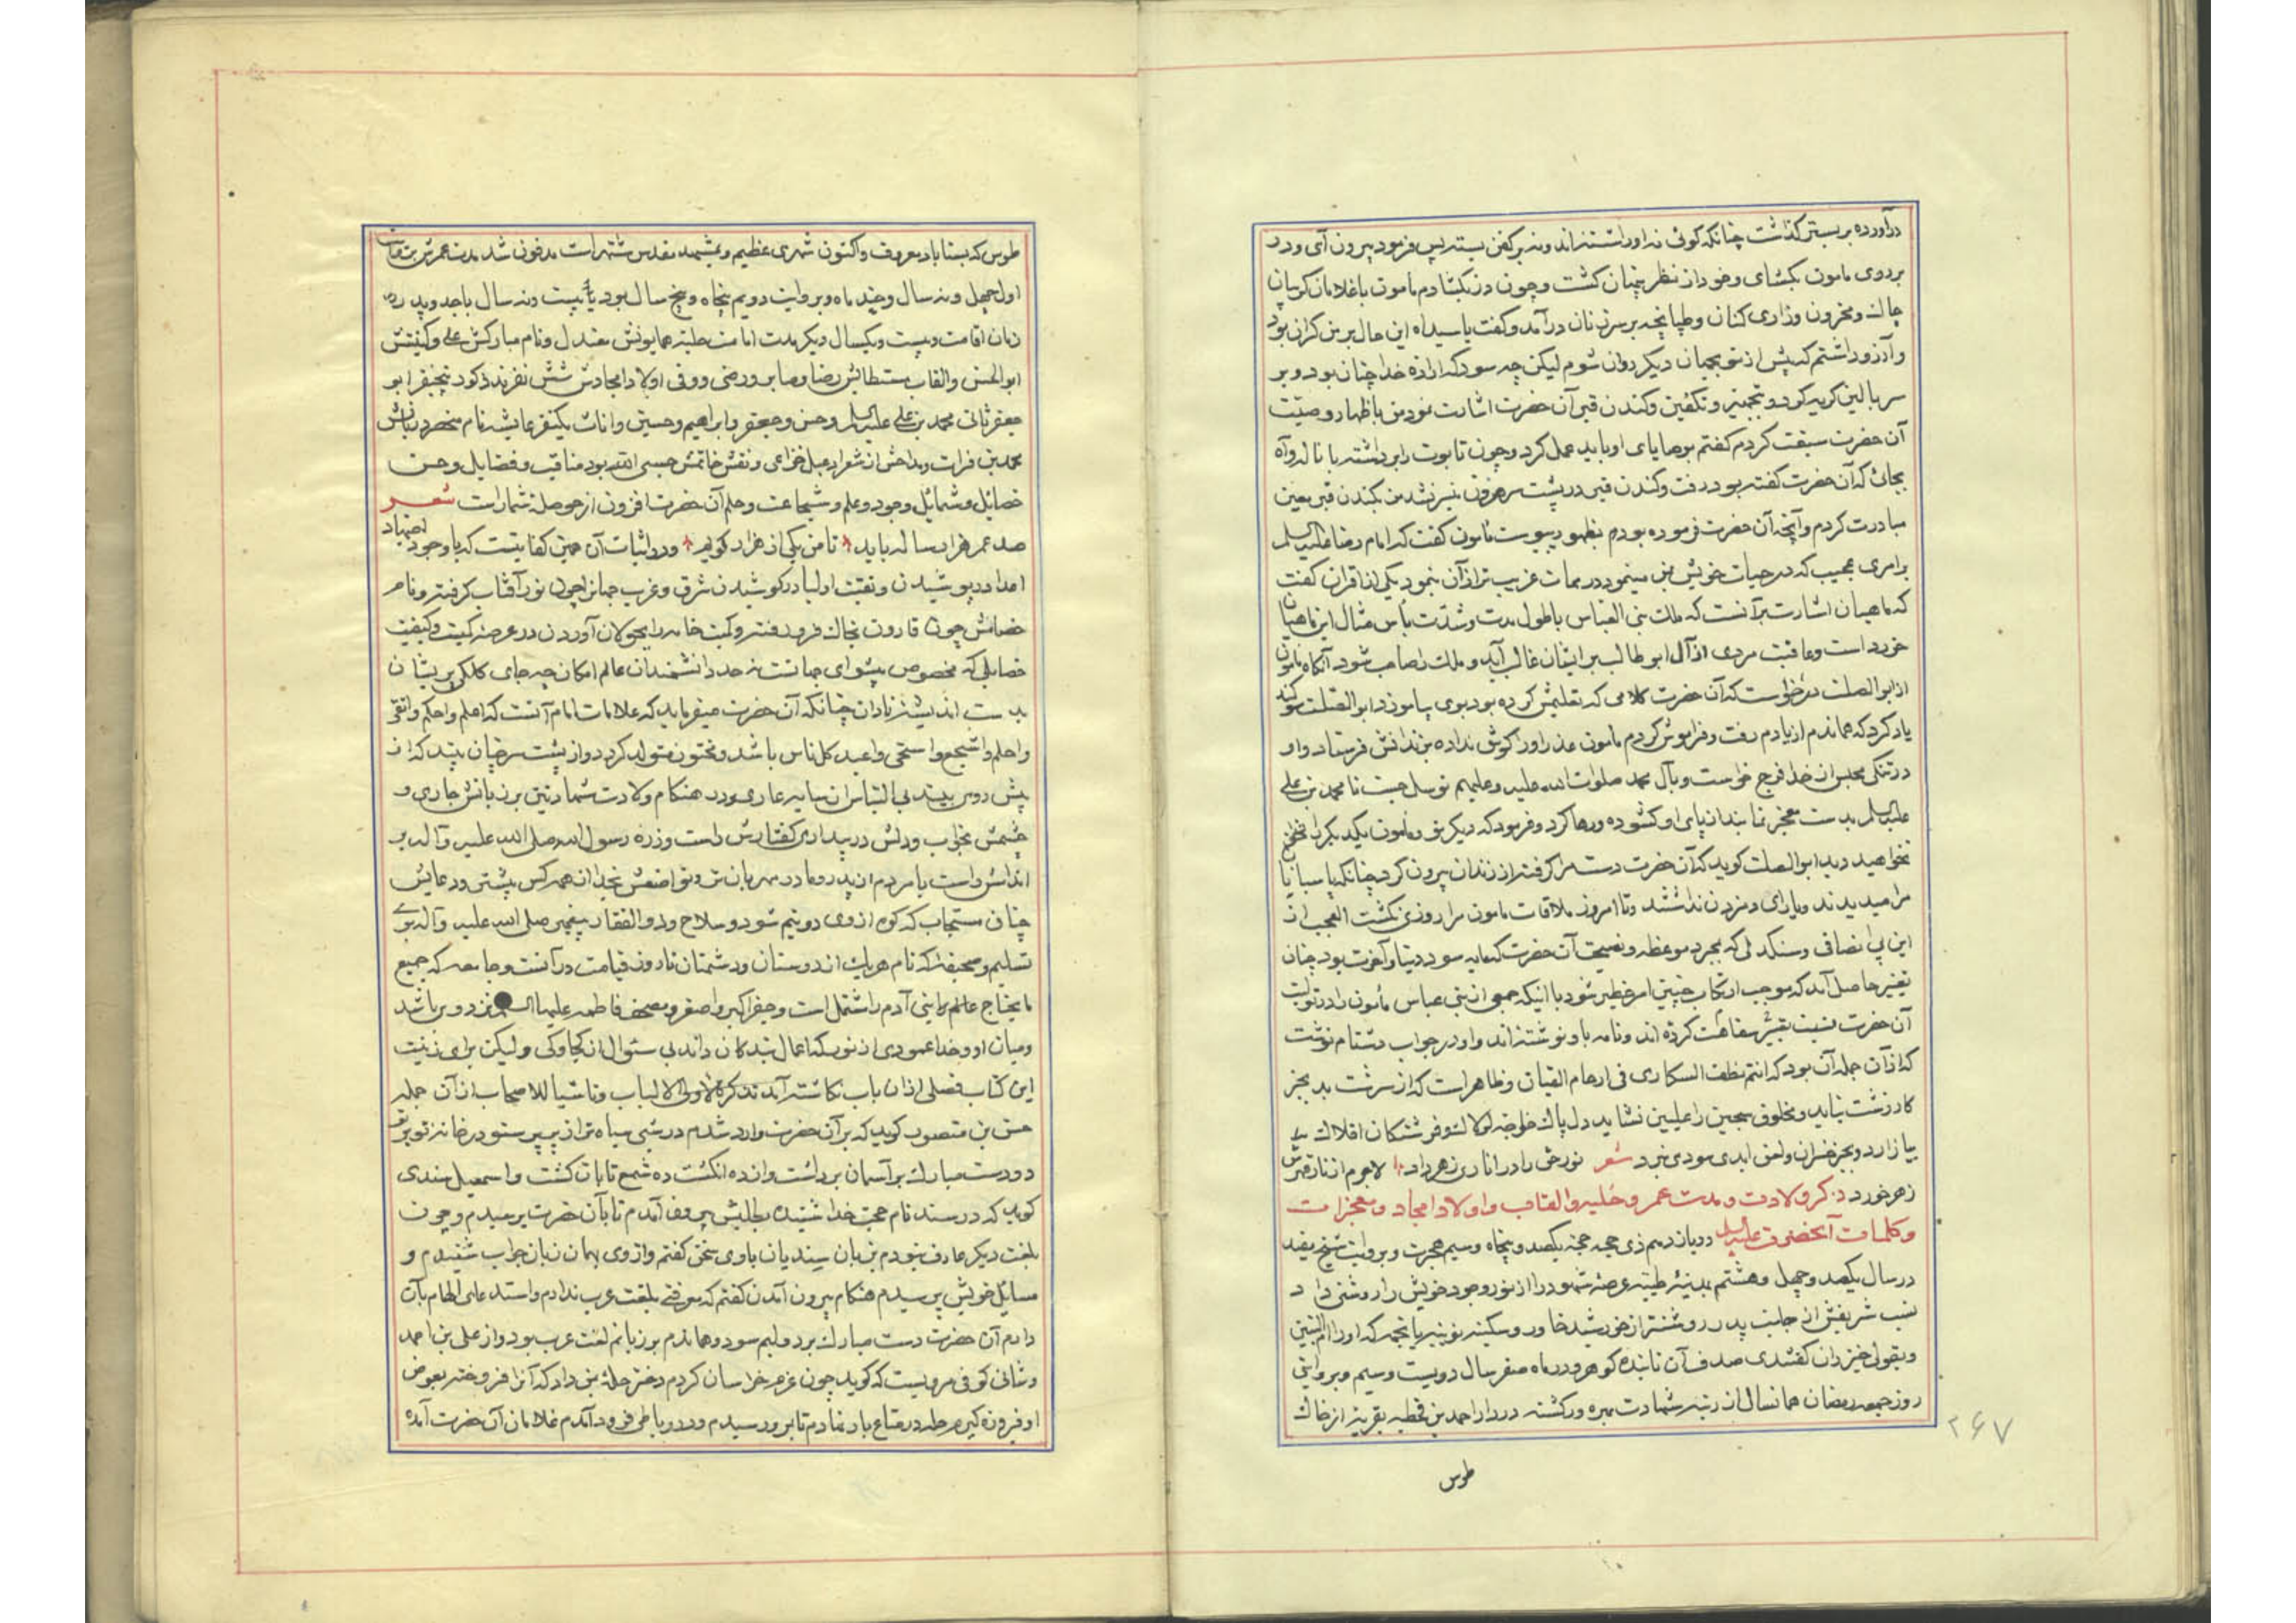 درآورده بر بستر گذاشت چنانکه گوئی نه اورا شسته‌اند و نه بر کفن بسته پس فرمود بیرون آی و در
بر روی مامون بگشای و خود از نظر پنهان گشت و چون در بگشادم مأمون با غلامان گریبان
چاک و محزون و زاری کنان و طپانچه بر سر زنان درآمد و گفت یا سیداه این حال بر من گران بود
و آرزو داشتم که پیش از تو بجهان دیگر روان شوم لیکن چه سود که اراده خدا چنان بود و بر
سر بالین گریه کرد و بتجهیز و تکفین و کندن قبر آن حضرت اشارت نمود من باظهار وصیّت
آن حضرت سبقت کردم گفتم بوصایای او باید عمل کرد و چون تابوت را برداشته با ناله و آه
بجائی که آن حضرت گفته بود رفت و کندن قبر در پشت سر هرون میسر نشد من بکندن قبر معین
مبادرت کردم و آنچه آن حضرت فرموده بودم بظهور پیوست مامون گفت که امام رضا علیه السلم
برامری عجیب که در حیات خویش بمن مینمود در ممات غریب تر از آن بنمود یکی از اقران گفت
که ماهیان اشارت برآنست که ملک بنی العباس با طول مدت و شدّت بأس مثال این ماهیان
خورد است و عاقبت مردی از آل ابو طالب بر ایشان غالب آید و ملک را صاحب شود آنگاه مامون
از ابو الصلت درخواست که آن حضرت کلامی که تعلیمش کرده بود بوی بیاموزد ابو الصلت سوگند
یاد کرد که هماندم از یادم رفت و فراموش کردم مامون عذر اورا گوش نداده بزندانش فرستاد و او
در تنگی محبس از خدا فرج خواست و بآل محمد صلوات الله علیه و علیهم توسل جست تا محمد بن علی
علیه السلم بدست معجز نما بند از پای او گشوده و رها کرد و فرمود که دیگر تو و مامون یکدیگر را
نخواهید دید ابو الصلت گوید که آن حضرت دست مرا گرفته از زندان بیرون کرد چنانکه پاسبانها
مرا میدیدند و یارای دم زدن نداشتند و تا امروز ملاقات مامون مرا روزی نگشت العجب از
این بی انصافی و سنگدلی که بمجرد موعظه و نصیحت آن حضرت که مایه سود دنیا و آخرت بود چنان
تغییر حاصل آید که موجب ارتکاب چنین امر خطیر شود با اینکه جمعی از بنی عباس مأمون را در تولیت
آن حضرت نسبت بسفاهت کرده اند و نامه باو نوشته اند و او در جواب دشنام نوشت
که از آن جمله آن بود که انتم نطف السکاری فی ارحام القیان و ظاهر است که از سرشت بد بجز
کار زشت نیاید و مخلوق سجین را علیین نشاید دل پاک خواجه لولاک و فرشتگان افلاک
بیازارد و بجز خسران و لعن ابدی سودی نبرد شعر نورحق را در اناری زهر داد لاجرم از نار قهرش
زهر خورد ذکر ولادت و مدت عمر و حلیه و القاب و اولاد امجاد و معجزات
و کلمات آنحضرت علیه السلم در یازدهم ذی حجه حجه یکصد و پنجاه و سیم هجرت و بروایت شیخ مفید
در سال یکصد و چهل و هشتم بمدینه طیبه عرصه شهود را از نور وجود خویش را روشنی داد
نسب شریفش از جانب پدر روشنتر از خورشید خاور و سکینه نوبیه یا نجمه که اورا ام البنین
و بقولی خیزران گفتندی صدف آن تابنده گوهر و در ماه صفر سال دویست و سیم و بروایتی
روز جمعه رمضان همانسال از رتبه شهادت بهره ور گشته در دار احمد بن قحطبه بقریه از خاک
طوس
۲۶۷
طوس که بسناباد معروف و اکنون شهری عظیم و بمشهد مقدس مشتهر است مدفون شد مدت عمرش
اول چهل و نه سال و چند ماه و بروایت دویم پنجاه و پنج سال بود بیست و نه سال با جد و پدر
زمان اقامت و بیست و یکسال دیگر مدت امامت حلیه همایونش معتدل و نام مبارکش علی و کنیتش
ابو الحسن و القاب مستطابش رضا و صابر و رضی و وفی اولاد امجادش شش نفرند ذکور پنجنفر ابو
جعفر ثانی محمد بن علی علیه السلم و حسن و جعفر و ابراهیم و حسین و اناث یکنفر عایشه نام
محمد بن فرات و مداحش از شعرا دعبل خزاعی و نقش خاتمش حسبی الله بود مناقب و فضایل و حسن
خصائل و شمایل وجود و علم و شجاعت و حلم آن حضرت افزون از حوصله شمار است شعر
صد عمر هزار ساله باید تا من یکی از هزار گویم و در اثبات آن همین کفایتست که با وجود اجتهاد
اعدا در پوشیدن و تقیت اولیا در کوشیدن شرق و غرب جهانرا چون نور آفتاب گرفته و نام
خصمانش چون قارون بخاک فرو رفته و کمیت خامه را بجولان آوردن در عرصه کمیت و کیفیت
خصایلی که مخصوص پیشوای جهانست نه حد دانشمندان عالم امکان چه جای کلکی پریشان
بدست اندیشه نادان چنانکه آن حضرت میفرماید که علامات امام آنست که اعلم و احکم و اتقی
و احلم و اشجع و اسخی و اعبد کل ناس باشد و مختون متولد گردد و از پشت سر چنان بیند که از
پیش روی بیند بی التباس از سایه عاری و در هنگام ولادت شهادتین بر زبانش جاری و
چشمش بخواب و دلش در بیداری گفتارش راست و زره رسول الله صلی الله علیه و آله بر
اندامش راست با مردم از پدر و مادر مهربان تر و تواضعش بخدا از همه کس بیشتر و دعایش
چنان مستجاب که کوه از وی دو نیم شود و سلاح و ذو الفقار پیغمبر صلی الله علیه و آله بوی
تسلیم و صحیفه که نام هر یک از دوستان و دشمنان تا روز قیامت در آنست و جامعه که جمیع
ما یحتاج عالم و بنی آدم را شتمل است و جفر اکبر و اصغر و مصحف فاطمه علیها السلم نزد وی باشد
و میان او و خدا عمودی از نور که اعمال بندگان داند بی سئوال از کجا و کی و لیکن برای زینت
این کتاب فصلی از آن باب نگاشته آمد تذکرة لاولی الالباب و تأسیا للاصحاب از آن جمله
حسن بن منصور گوید که بر آن حضرت وارد شدم در شبی سیاه تر از پر پرستو در خانه
دو دست مبارک بر آسمان برداشت و از ده انگشت ده شمع تابان گشت و اسمعیل سندی
گوید که در سند نام حجت خدا شنیده بطلبش بیرون آمدم تا بآن حضرت برسیدم و چون
بلغت دیگر عارف نبودم بزبان سندیان باوی سخن گفتم و از وی بهمان زبان جواب شنیدم و
مسایل خویش پرسیدم هنگام بیرون آمدن گفتم که معرفتی بلغت عرب ندارم و استدعای الهام بآن
دارم آن حضرت دست مبارک بر دو لبم سود و هماندم بر زبانم لغت عرب بود و از علی بن احمد
وشائی کوفی مرویست که گوید چون عزم خراسان کردم دخترم حله بمن داد که آنرا فروخته بعوض
او فیروزه گیرم حله در متاع بار نهادم تا بمرو رسیدم و در رباطی فرود آمدم غلامان آن حضرت آمده